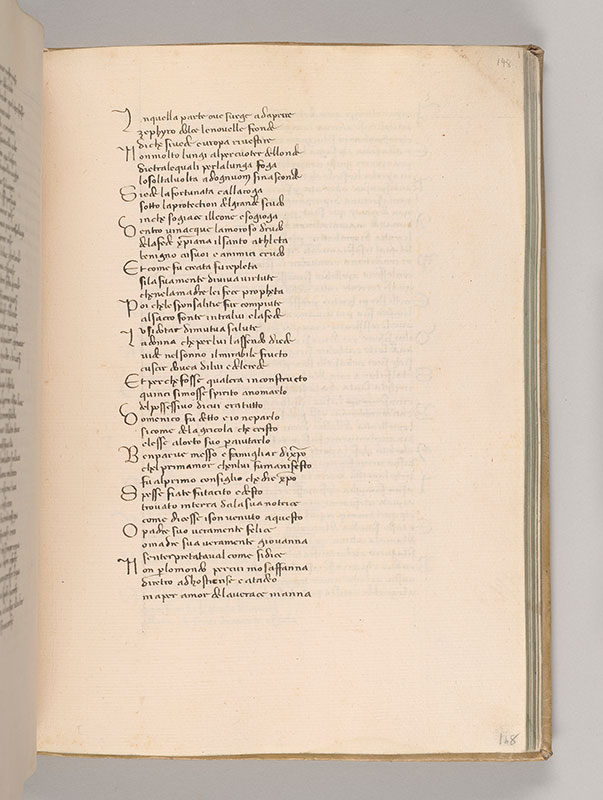 148
In quella parte ove surge adaprire
zephyro dolce le novelle fronde
di che sivede europa rivestire
Non molto lungi alpercuoter dellonde
dietralequali perlalunga foga
losol talvolta adognuom sinasconde
Siede lafortunata callaroga
sotto laprotection delgrande scudo
inche sogiace illeone esogioga
Dentro vinacque lamoroso drudo
dela fede xpiana il santo athleta
benigno aisuoi e animici crudo
Et come fu creata fu repleta
sila sua mente diviva virtute
che nela madre lei fece propheta
Poi che le sponsalitie fur compiute
al sacro fonte intralui elafede
U si dotar dimutua salute
La donna che per lui lassenso diede
vide nel sonno il mirabile fructo
cuscir dovea dilui e delerede
Et per che fosse qualera in constructo
quinci simosse spirito anomarlo
del possessivo di cui era tutto
Domenico fu detto e io ne parlo
si come de la gricola che cristo
elesse alorto suo p aiutarlo
Ben parve messo e famigliar di xpo
chel primamor chenlui fu manifesto
fu al primo consiglio che die xpo
Spesse fiate fu tacito e desto
trovato interra da la sua notrice
come dicesse i son venuto aquesto
O padre suo veramente felice
o madre sua veramente giovanna
se interpretata val come si dice
Non p lo mondo per cui mo saffanna
diretro ad hostiense e a tadeo
ma per amor de la verace manna
148